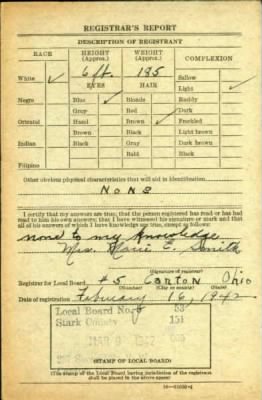 REGISTRAR'S REPORT
DESCRIPTION OF REGISTRANT
RACE HEIGHT (Approx.) WEIGHT (Approx.) COMPLEXION
White ✓ 6 ft. 185 Sallow
EYES HAIR Light ✓
Negro Blue ✓ Blonde Ruddy
Gray Red Dark
Oriental Hazel Brown ✓ Freckled
Brown Black Light brown
Indian Black Gray Dark brown
Bald Black
Filipino
Other obvious physical characteristics that will aid in identification
None
I certify that my answers are true; that the person registered has read or has had
read to him his own answers; that I have witnessed his signature or mark and that
all of his answers of which I have knowledge are true, except as follows:
none to my knowledge
Mrs. Marie E. Smith
(Signature of registrar)
Registrar for Local Board #5 Canton Ohio
(Number) (City or county)
Date of registration February 16, 1942
Local Board No. 5 53
Stark County 151
MAR 9 1942
(STAMP OF LOCAL BOARD)
(The stamp of the Local Board having jurisdiction of the registrant
shall be placed in the above space.)